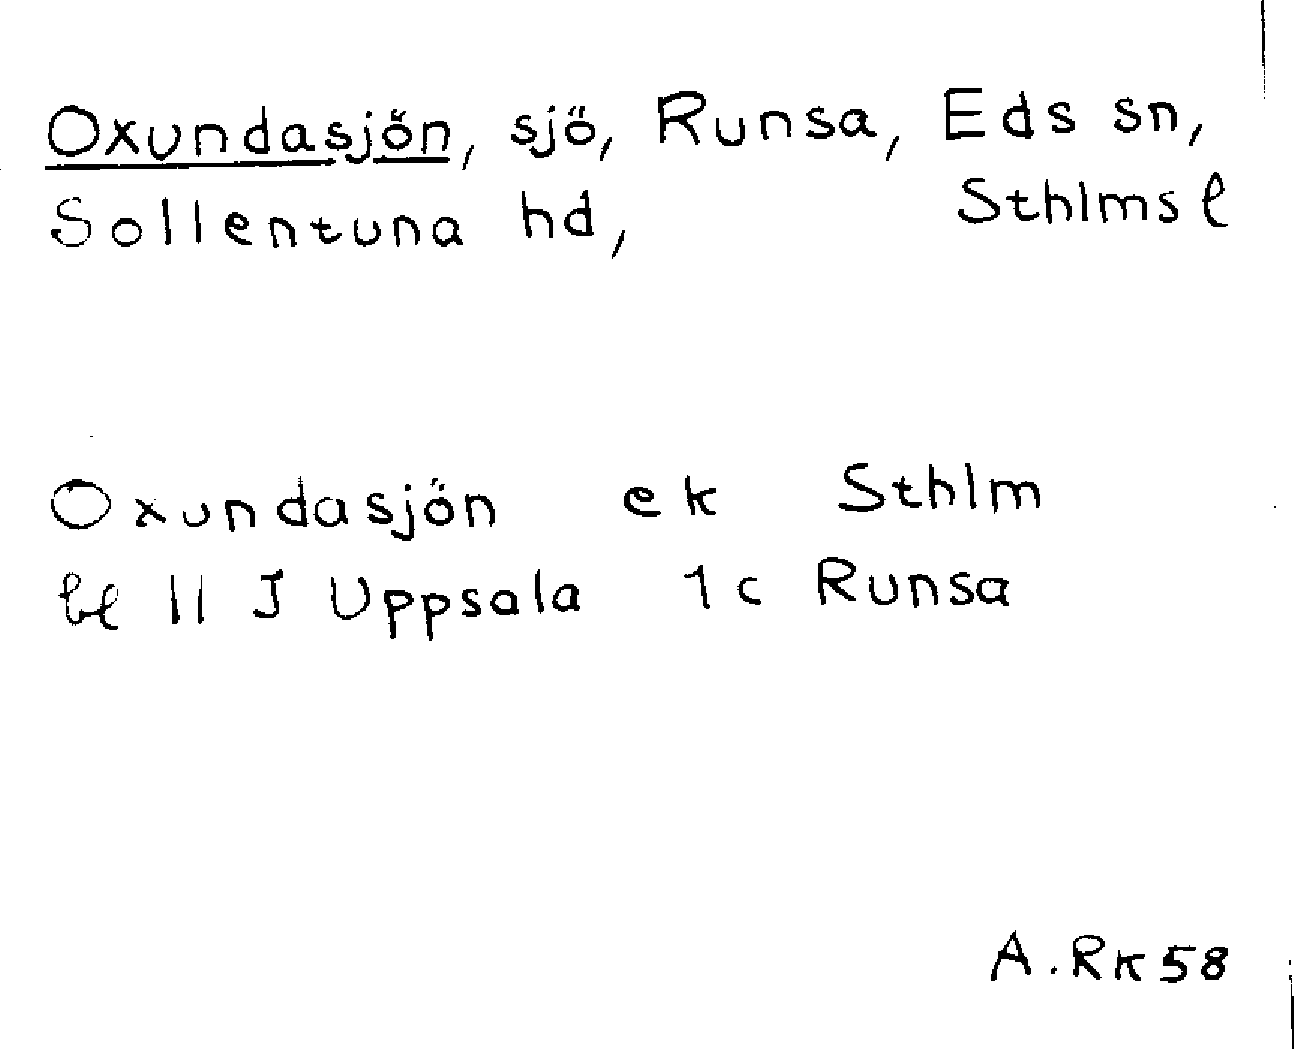 Oxundasjön, sjö, Runsa, Eds sn,
Sollentuna hd, Sthlms l
Oxundasjön ek Sthlm
bl 11 J Uppsala 1c Runsa
A.Rk58